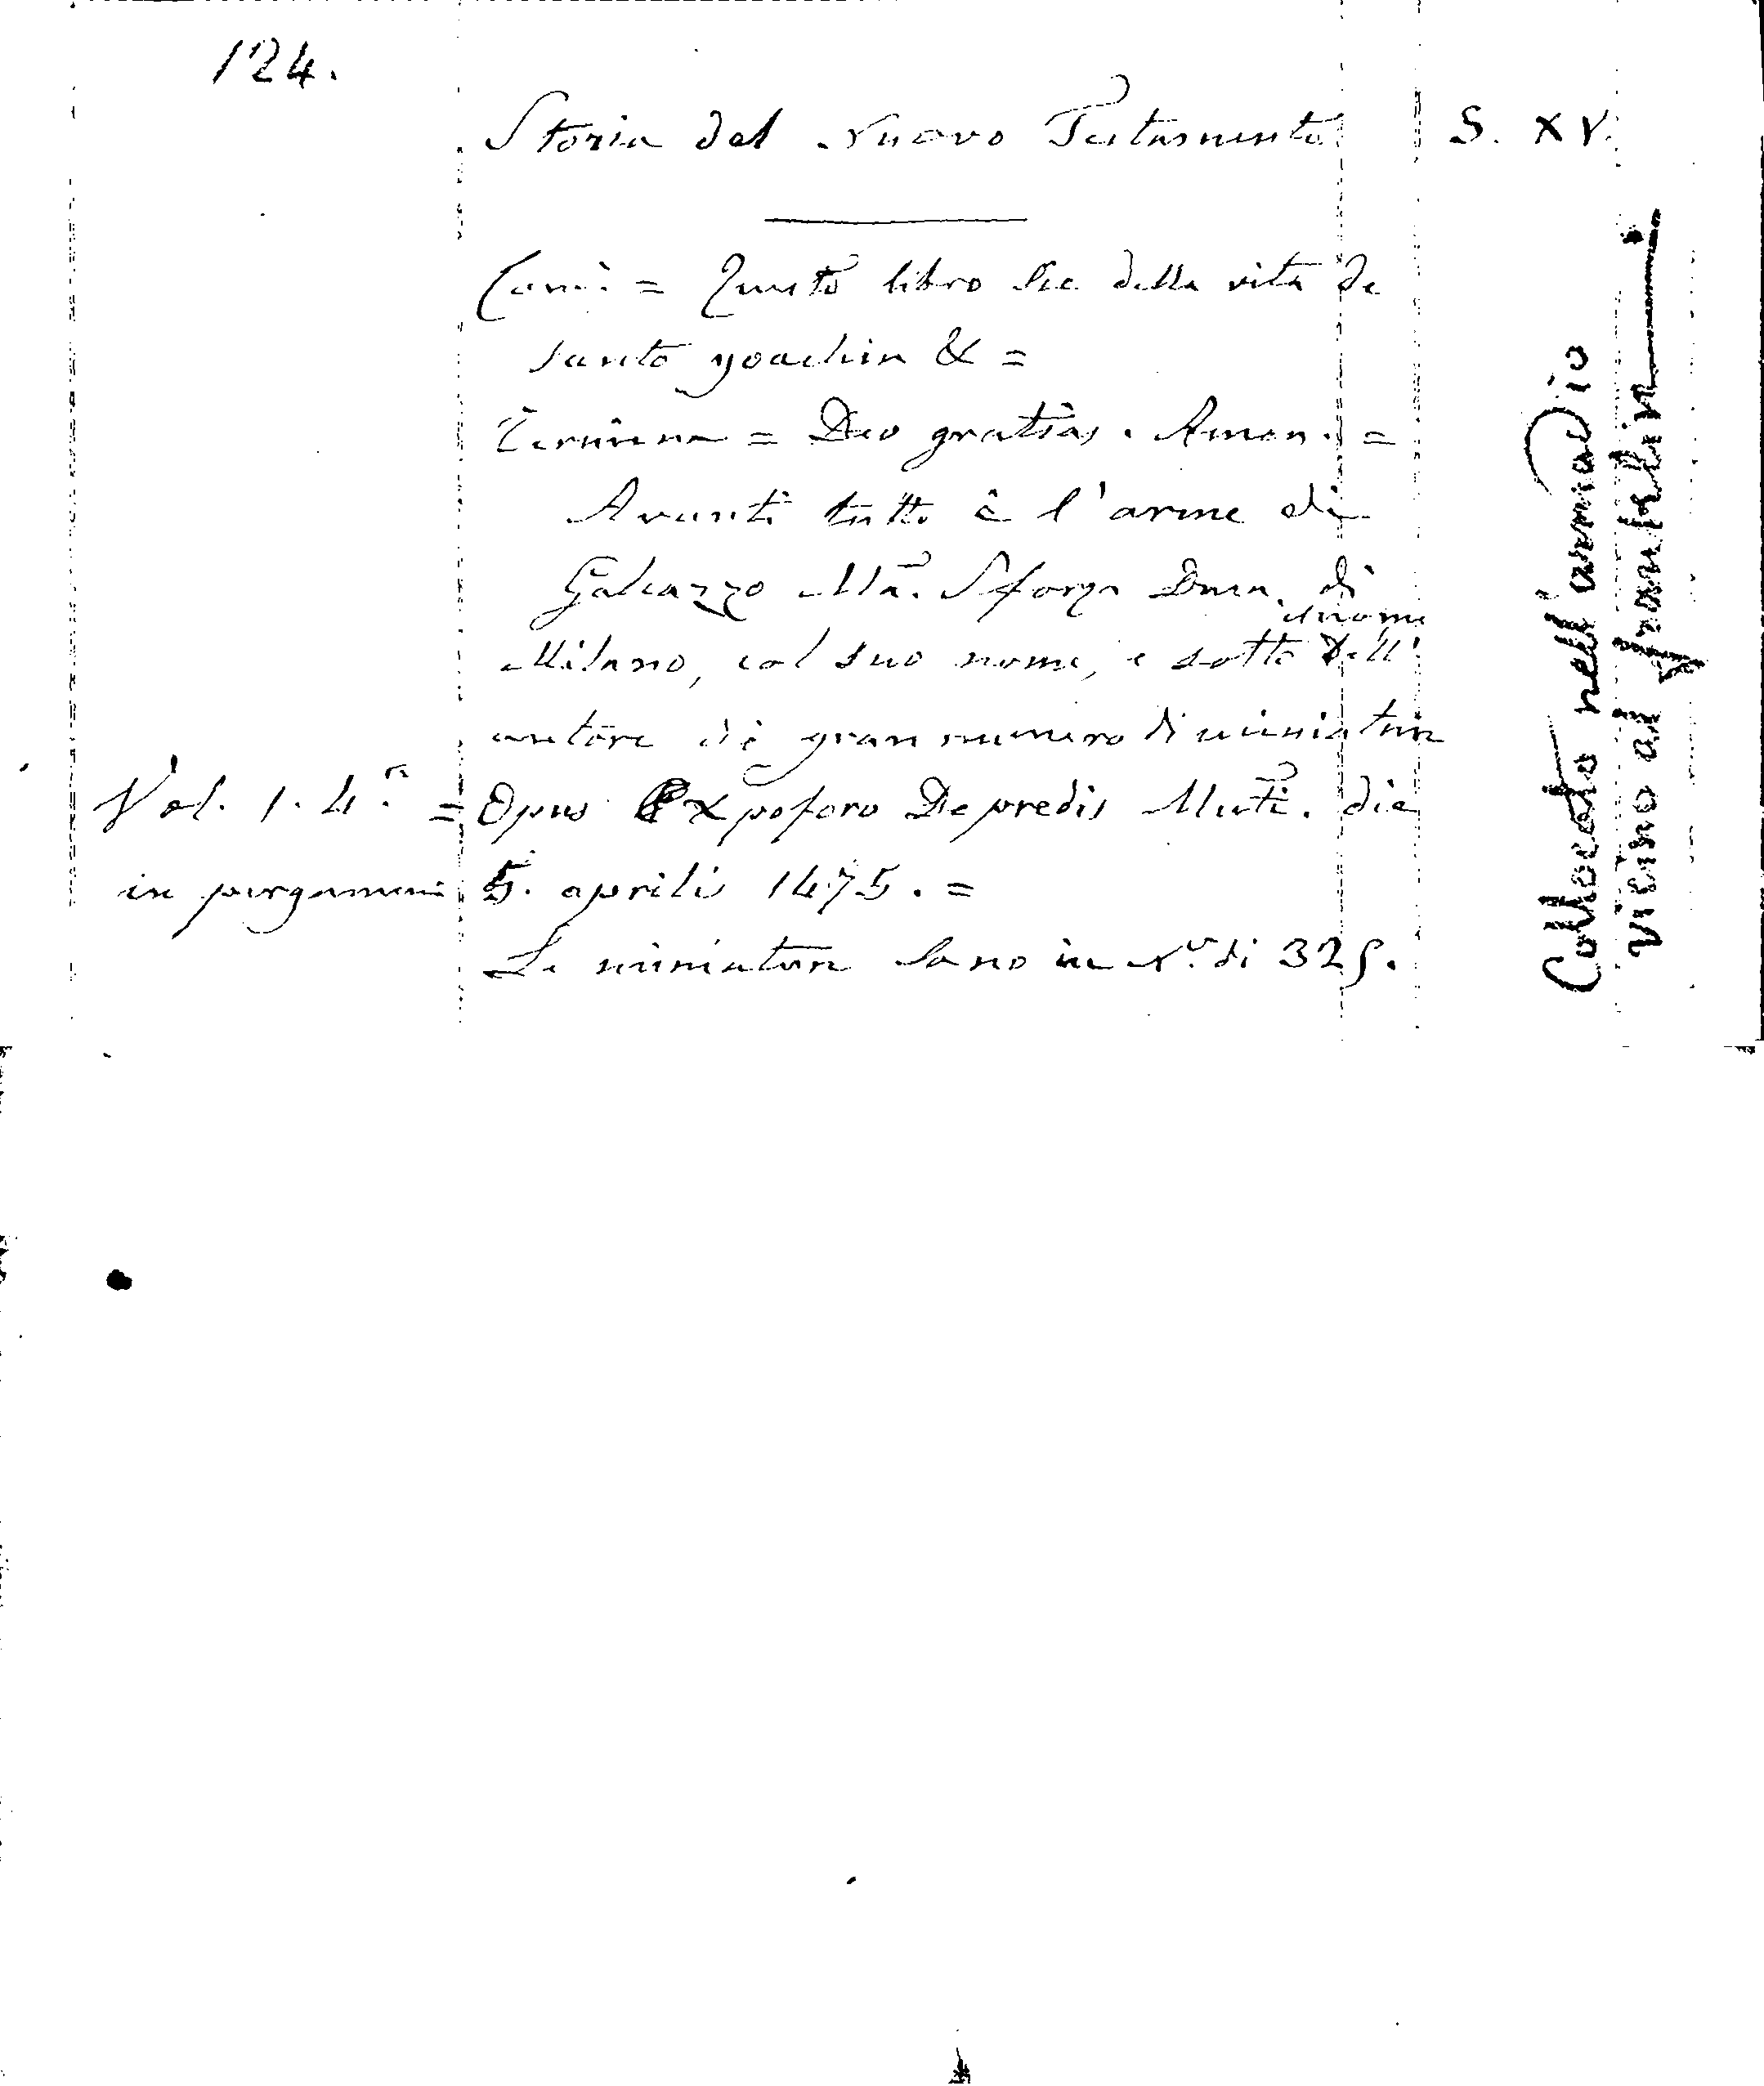 124.
Storia del Nuovo Testamento S. XV.
Com: = Questo libro sie della vita de
santo yoachin & =
Termina = Deo gratias. Amen. =
Avanti tutto è l'arme di
Galeazzo Ma. Sforza Duca di
Milano, col suo nome, e sotto dell'
autore di gran numero di miniature
Vol. 1. 4.º = Opus Xpoforo De predis Muti. die
in pergamena 5. aprilis 1475. =
Le miniature sono in N.º di 325.
Collocato nell'armadio
vicino al franklin